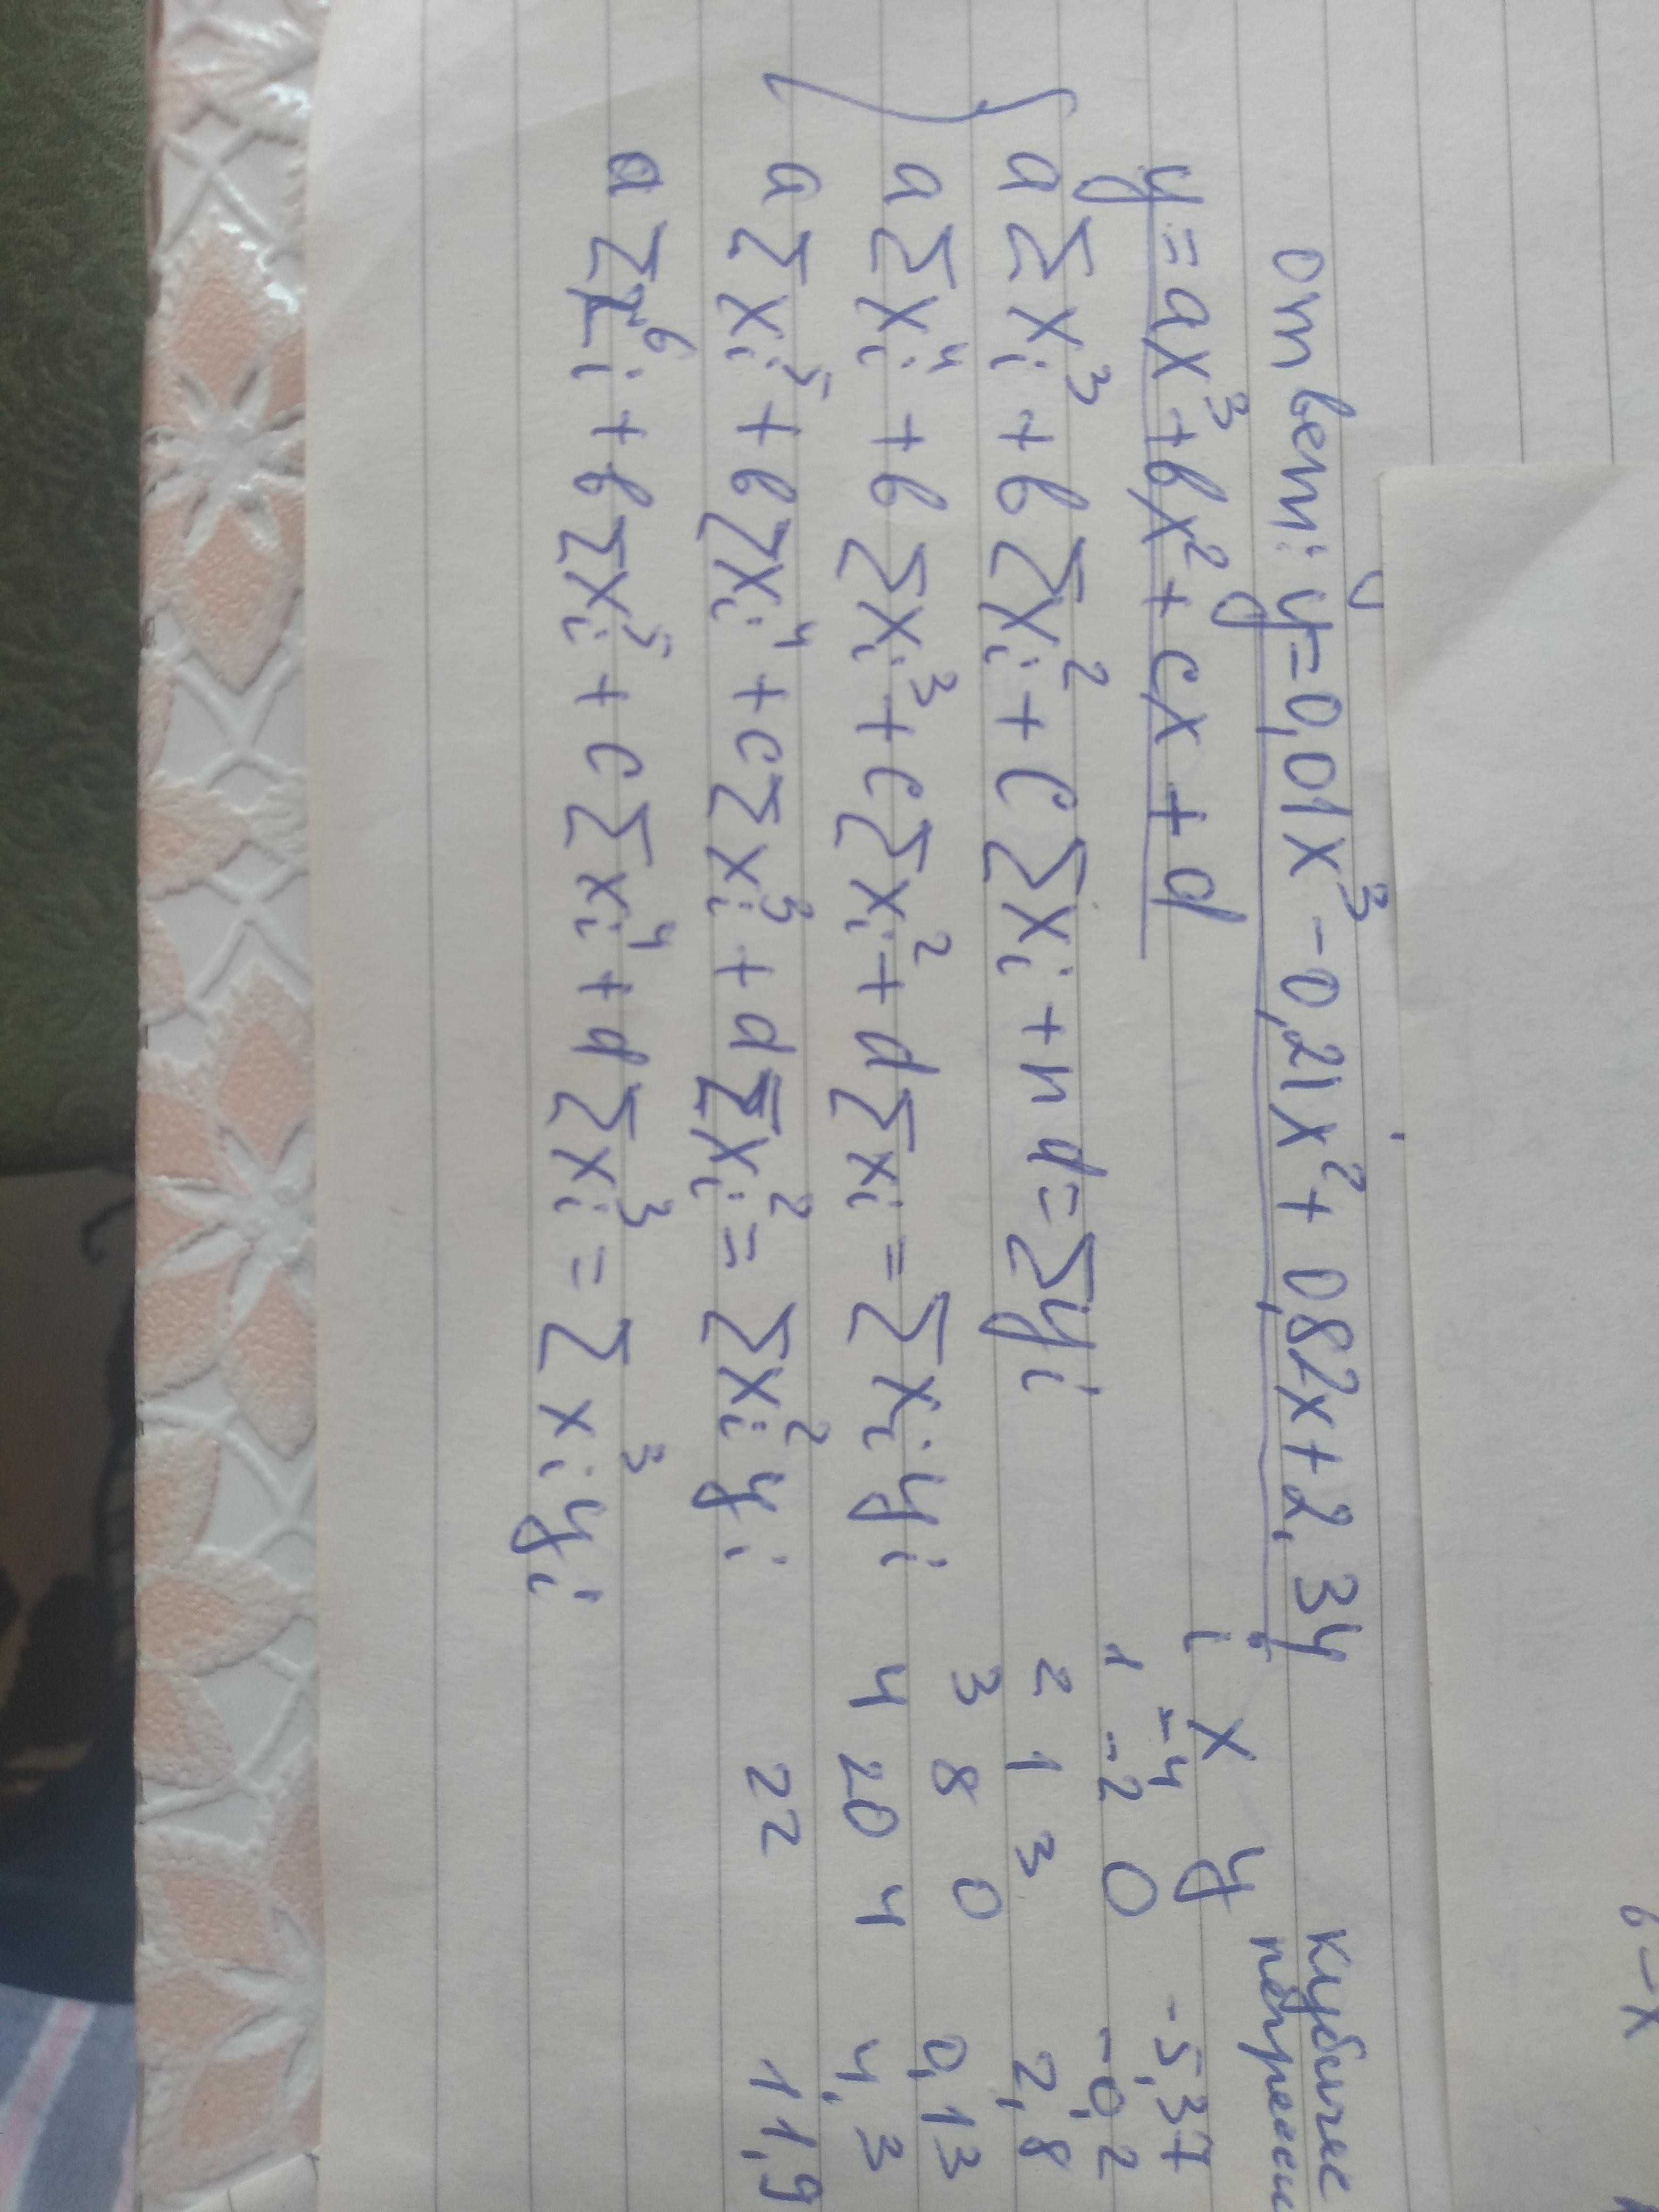 ответ: y=0,01x³-0,21x²+0,82x+2,34
y=ax³+bx²+cx+d
a∑xᵢ³+b∑xᵢ²+c∑xᵢ+nd=∑yᵢ
a∑xᵢ⁴+b∑xᵢ³+c∑xᵢ²+d∑xᵢ=∑xᵢyᵢ
a∑xᵢ⁵+b∑xᵢ⁴+c∑xᵢ³+d∑xᵢ²=∑xᵢ²yᵢ
a∑xᵢ⁶+b∑xᵢ⁵+c∑xᵢ⁴+d∑xᵢ³=∑xᵢ³yᵢ
i x y
-4 -5,37
1 -2 0 -0,2
2 1 3 2,8
3 8 0 0,13
4 20 4 4,3
22 11,9